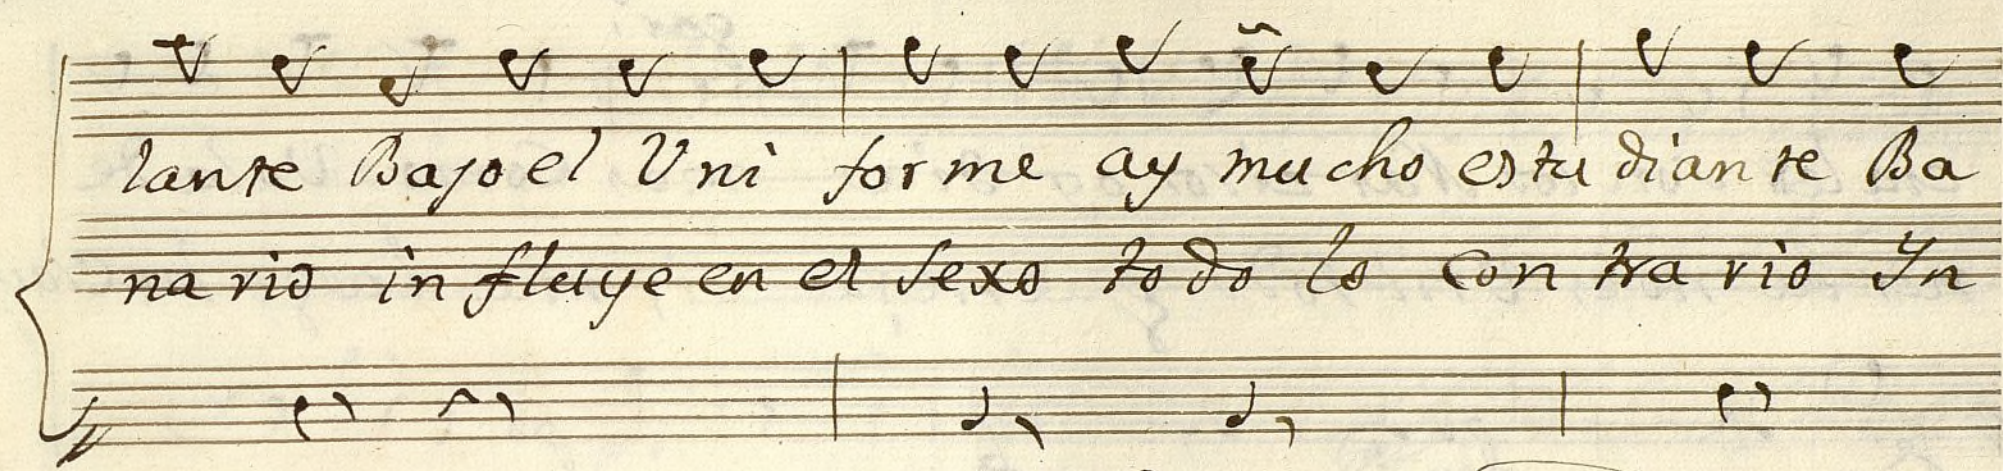 lante Bajo el Uni forme ay mucho estu diante Ba
na rio in fluye en el Sexo todo lo Con tra rio In